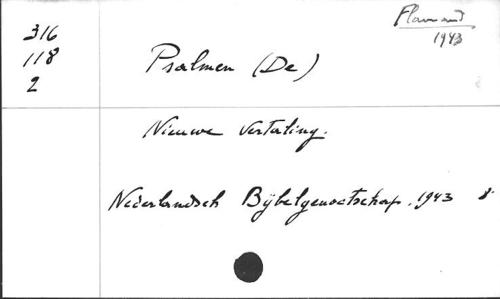 316
118
2
Flamand
1943
Psalmen (De)
Nieuwe Vertaling.
Nederlandsch Bijbelgenootschap. 1943 8°